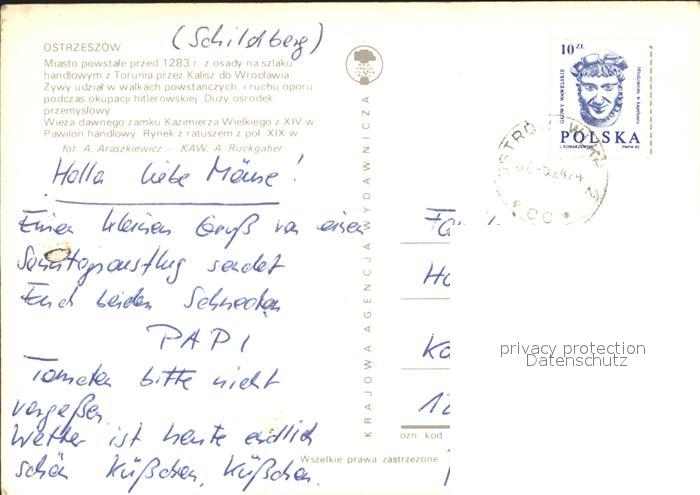 (Schildberg)
OSTRZESZÓW
Miasto powstałe przed 1283 r. z osady na szlaku
handlowym z Torunia przez Kalisz do Wrocławia
Żywy udział w walkach powstańczych, i ruchu oporu
podczas okupacji hitlerowskiej. Duży ośrodek
przemysłowy
Wieża dawnego zamku Kazimierza Wielkiego z XIV w
Pawilon handlowy. Rynek z ratuszem z poł. XIX w
fot. A. Araszkiewicz – KAW. A. Rückgaber
Holla liebe Mäuse!
Einen kleinen Gruß von einem
Sonntagsausflug sendet
Euch beiden Schnecken
PAPI
Tomaten bitte nicht
vergeßen.
Wetter ist heute endlich
schön Küßchen, Küßchen.
KRAJOWA AGENCJA WYDAWNICZA
10 ZŁ
GŁOWY WAWELSKIE
Młodzieniec w kapeluszu
POLSKA
OSTRÓW WLKP. 2
Fa
Ho
Ka
ozn kod
Wszelkie prawa zastrzeżone
privacy protection
Datenschutz